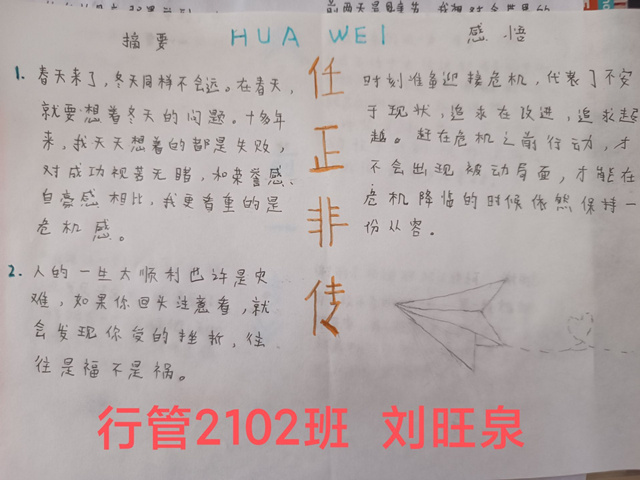 摘要
HUA WEI
感悟
任正非传
1. 春天来了,冬天同样不会远。在春天,
就要想着冬天的问题。十多年
来,我天天想着的都是失败,
对成功视若无睹,和荣誉感、
自豪感相比,我更看重的是
危机感。
2. 人的一生太顺利也许是灾
难,如果你回头注意看,就
会发现你受的挫折,往
往是福不是祸。
时刻准备迎接危机,代表了不安
于现状,追求在改进,追求超
越。赶在危机之前行动,才
不会出现被动局面,才能在
危机降临的时候依然保持一
份从容。
行管2102班 刘旺泉